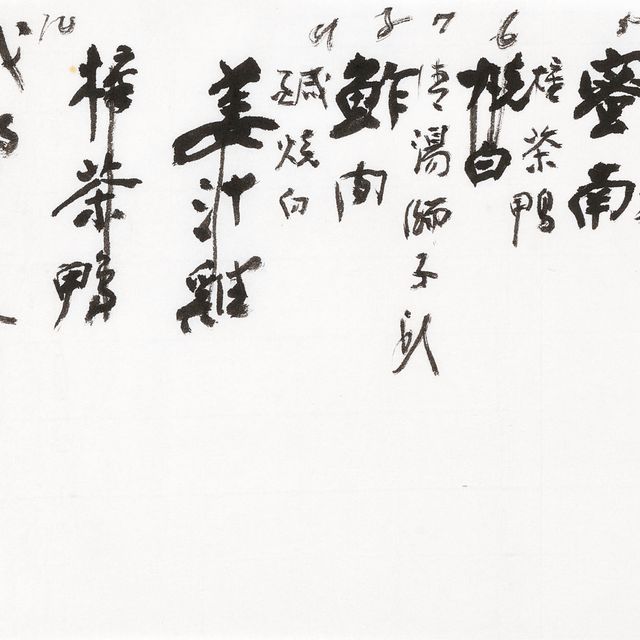 蜜南
6
樟茶鴨
燒白
7
清湯獅子
鮓肉
9
鹹燒白
姜汁雞
10
樟茶鴨